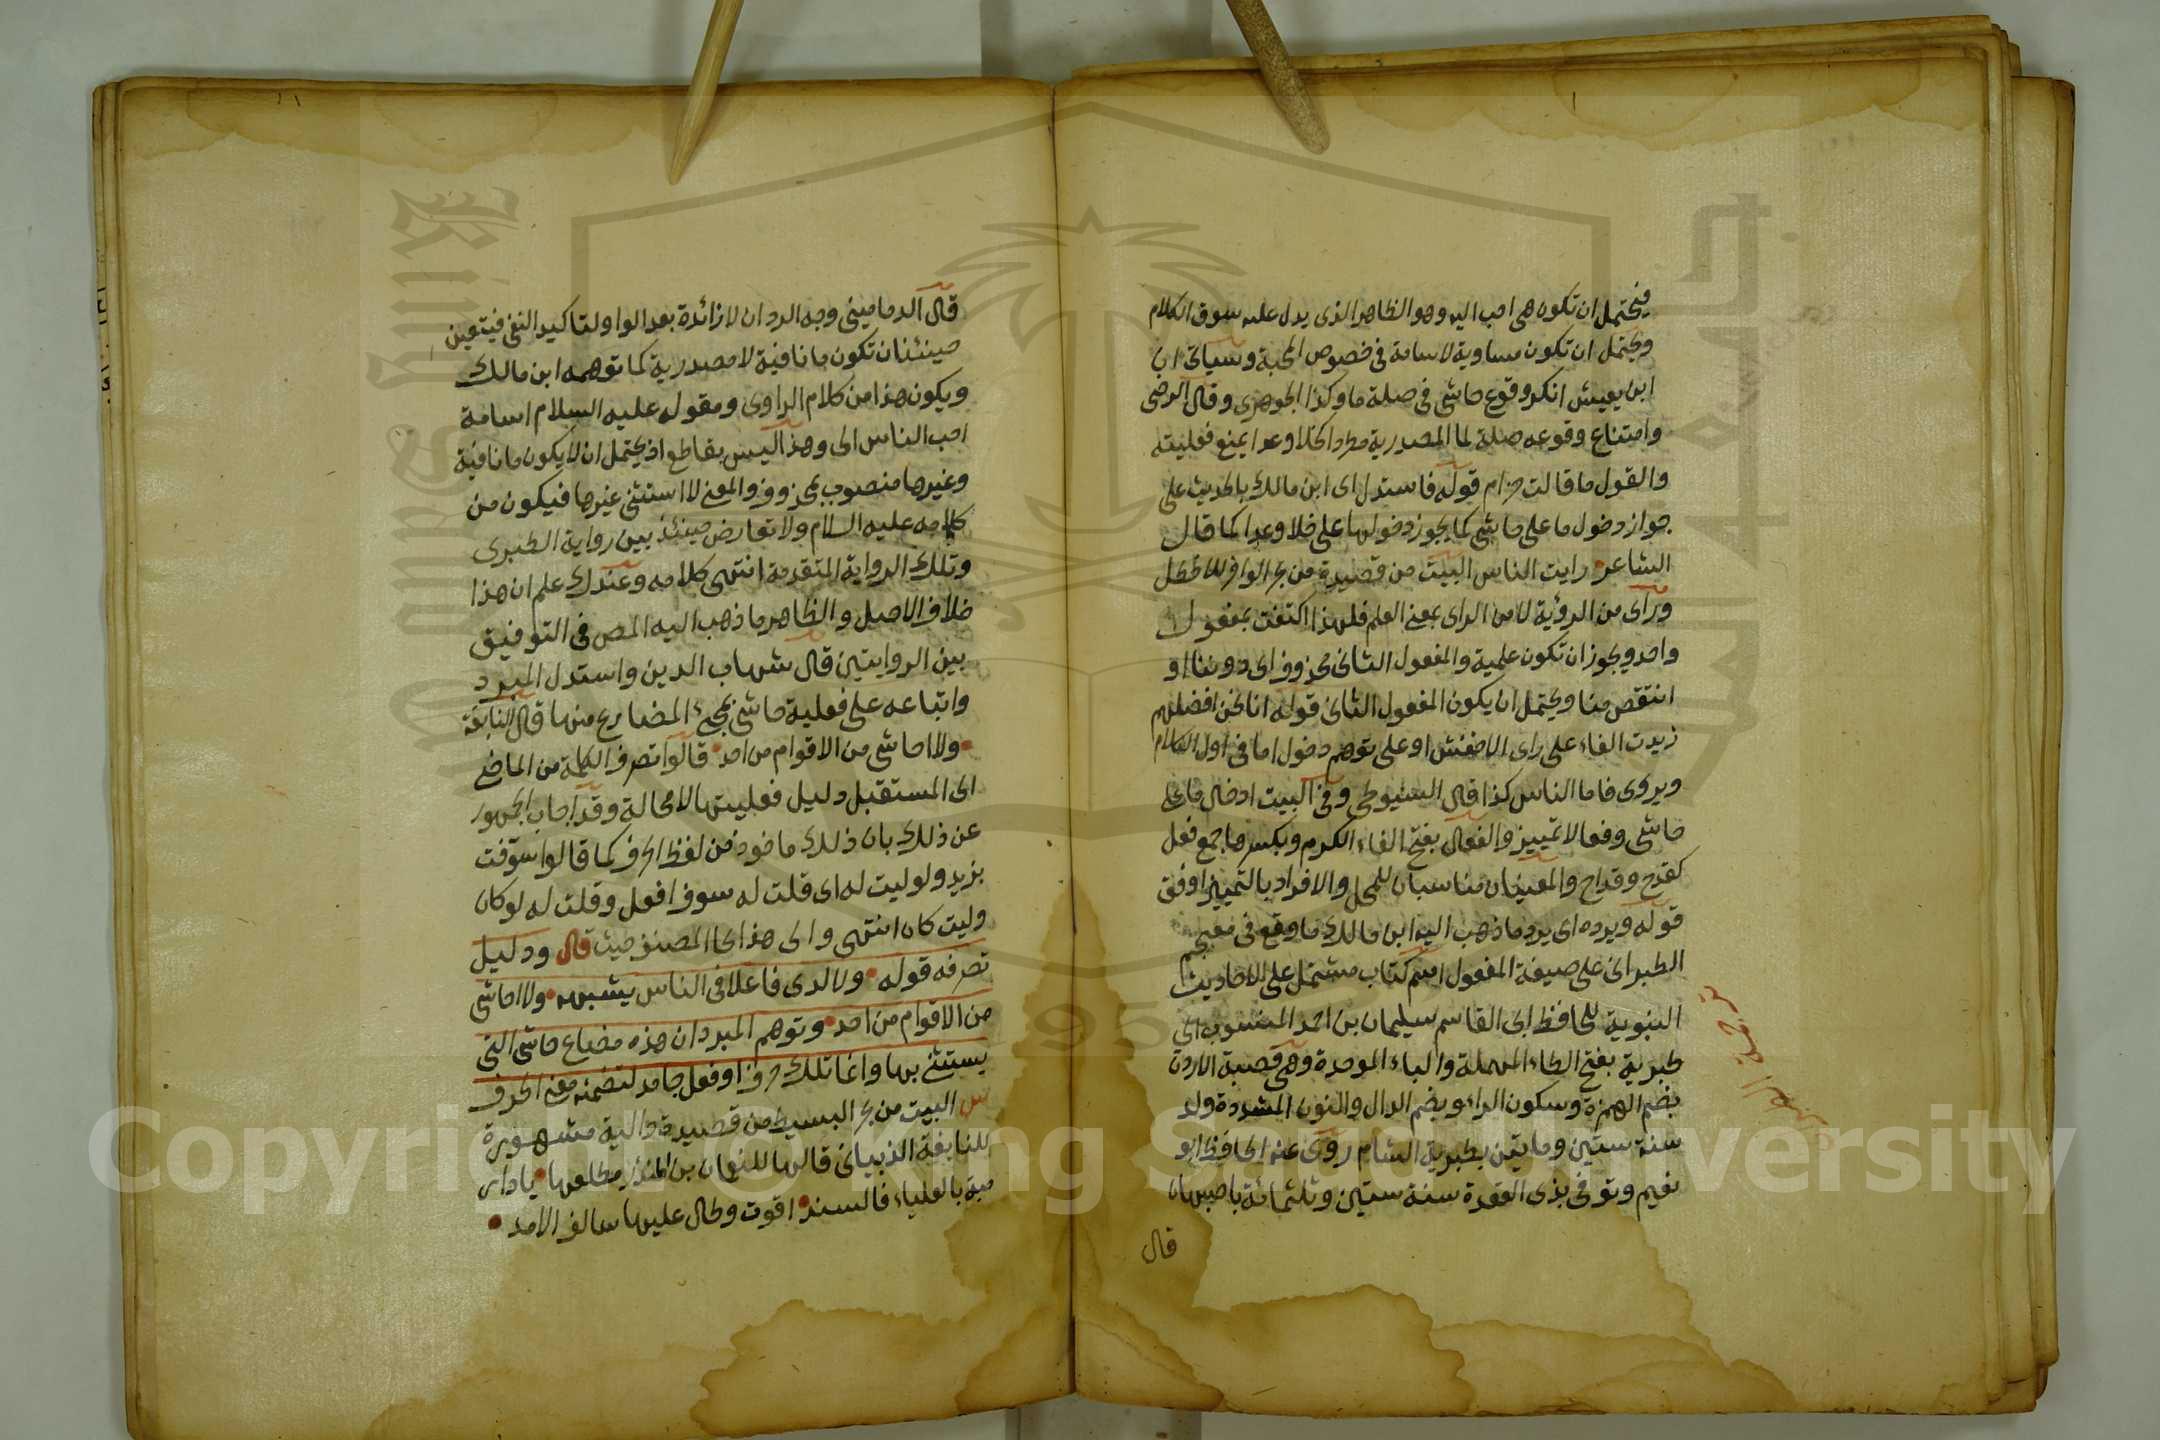 فيحتمل ان تكون هى احب اليه وهو الظاهر الذى يدل عليه سوق الكلام
ويحتمل ان تكون مساوية لاسامة فى خصوص المحبة وسياتى ان
ابن يعيش انكر وقوع حاشى فى صلة ما وكذا الجوهرى وقال الرضى
وامتناع وقوعه صلة لما المصدرية مطردا كخلا وعدا يمنع فعليته
والقول ما قالت حزام قوله فاستدل اى ابن مالك بالحديث على
جواز دخول ما على حاشى كما يجوز دخولها على خلا وعدا كما قال
الشاعر رايت الناس البيت من قصيدة من بحر الوافر للاخطل
وراى من الرؤية لا من الراى بمعنى العلم فلهذا اكتفت بمفعول
واحد ويجوز ان تكون علمية والمفعول الثانى محذوف اى دوننا او
انتقص منا ويحتمل ان يكون المفعول الثانى قوله انا نحن افضلهم
زيدت الفاء على راى الاخفش او على توهم دخول اما فى اول الكلام
ويروى فاما الناس كذا قال السيوطى وفى البيت ادخال ما على
حاشى وفعالا تمييز والفعال بفتح الفاء الكرم وبكسرها جمع فعل
كقدح وقداح والمعنيان مناسبان للمحل والافراد بالتمييز اوفق
قوله ويرده اى يرد ما ذهب اليه ابن مالك ما وقع فى معجم
الطبرانى على صيغة المفعول اسم كتاب مشتمل على الاحاديث
النبوية للحافظ ابى القاسم سليمان بن احمد المنسوب الى
طبرية بفتح الطاء المهملة والباء الموحدة وهى قصبة الاردن
بضم الهمزة وسكون الراء وبضم الدال والنون المشددة ولد
سنة ستين ومايتين بطبرية الشام روى عنه الحافظ ابو
نعيم وتوفى بذى القعدة سنة ستين وثلثمائة باصبهان
قال
قال الدمامينى وجه الرد ان لا زائدة بعد الواو لتاكيد النفى فيتعين
حينئذ ان تكون ما نافية لا مصدرية كما توهمه ابن مالك
ويكون هذا من كلام الراوى ومقوله عليه السلام اسامة
احب الناس الى وهذا ليس بقاطع اذ يحتمل ان لا يكون ما نافية
وغيرها منصوب بمحذوف والمعنى لا استثنى غيرها فيكون من
كلامه عليه السلام ولا تعارض حينئذ بين رواية الطبرى
وتلك الرواية المتقدمة انتهى كلامه وعندك علم ان هذا
خلاف الاصل والظاهر ما ذهب اليه المص فى التوفيق
بين الروايتين قال شهاب الدين واستدل المبرد
واتباعه على فعلية حاشى بمجئ المضارع منها قال النابغة
ولا احاشى من الاقوام من احد قالوا تصرف الكلمة من الماضى
الى المستقبل دليل فعليتها لا محالة وقد اجاب الجمهور
عن ذلك بان ذلك ماخوذ من لفظ الحرف كما قالوا سوّفت
بزيد ولوليت له اى قلت له سوف افعل وقلت له لو كان
وليت كان انتهى والى هذا نحا المصنف حيث قال ودليل
تصرفه قوله ولا ادى فاعلا فى الناس يشبهه ولا احاشى
من الاقوام من احد وتوهم المبرد ان هذه مضارع حاشى التى
يستثنى بها وانما تلك حرف او فعل جامد لتضمنه معنى الحرف
س البيت من بحر البسيط من قصيدة دالية مشهورة
للنابغة الذبيانى قالها للنعمان بن المنذر مطلعها يا دار
مية بالعلياء فالسند اقوت وطال عليها سالف الامد
Copyright © King Saud University